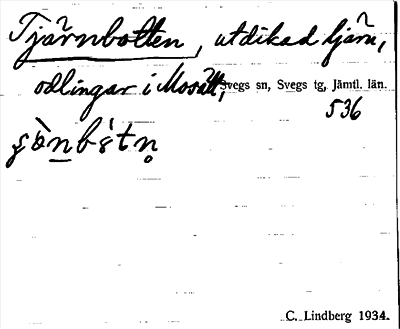 Tjärnbotten, utdikad tjärn,
odlingar i Mosätt, Svegs sn, Svegs tg, Jämtl. län.
536
C. Lindberg 1934.